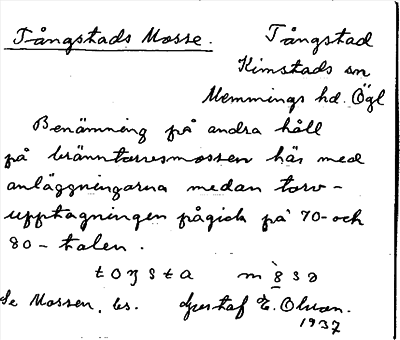 Tångstads Mosse. Tångstad
Kimstads sn
Memmings hd. Ögl
Benämning på andra håll
på bränntorvsmossen här med
anläggningarna medan torv-
upptagningen pågick på 70- och
80-talen.
Se Mossen, bs. Gustaf E. Olsson.
1937